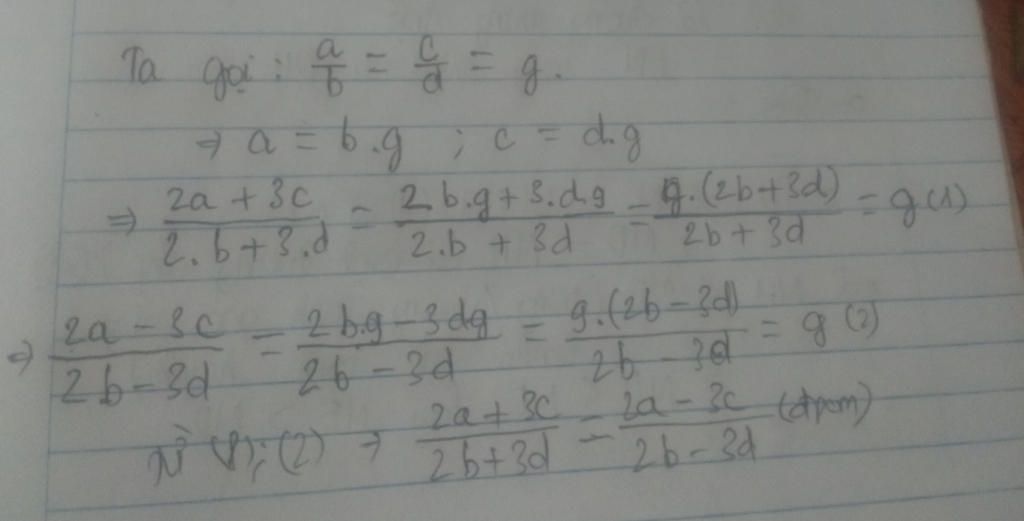 Ta gọi : a/b = c/d = g.
⇒ a = b.g ; c = d.g
⇒ (2a + 3c)/(2.b + 3.d) = (2.b.g + 3.d.g)/(2.b + 3d) = (g.(2b + 3d))/(2b + 3d) = g (1)
⇒ (2a - 3c)/(2b - 3d) = (2b.g - 3dg)/(2b - 3d) = (g.(2b - 3d))/(2b - 3d) = g (2)
Từ (1); (2) → (2a + 3c)/(2b + 3d) = (2a - 3c)/(2b - 3d) (đpcm)